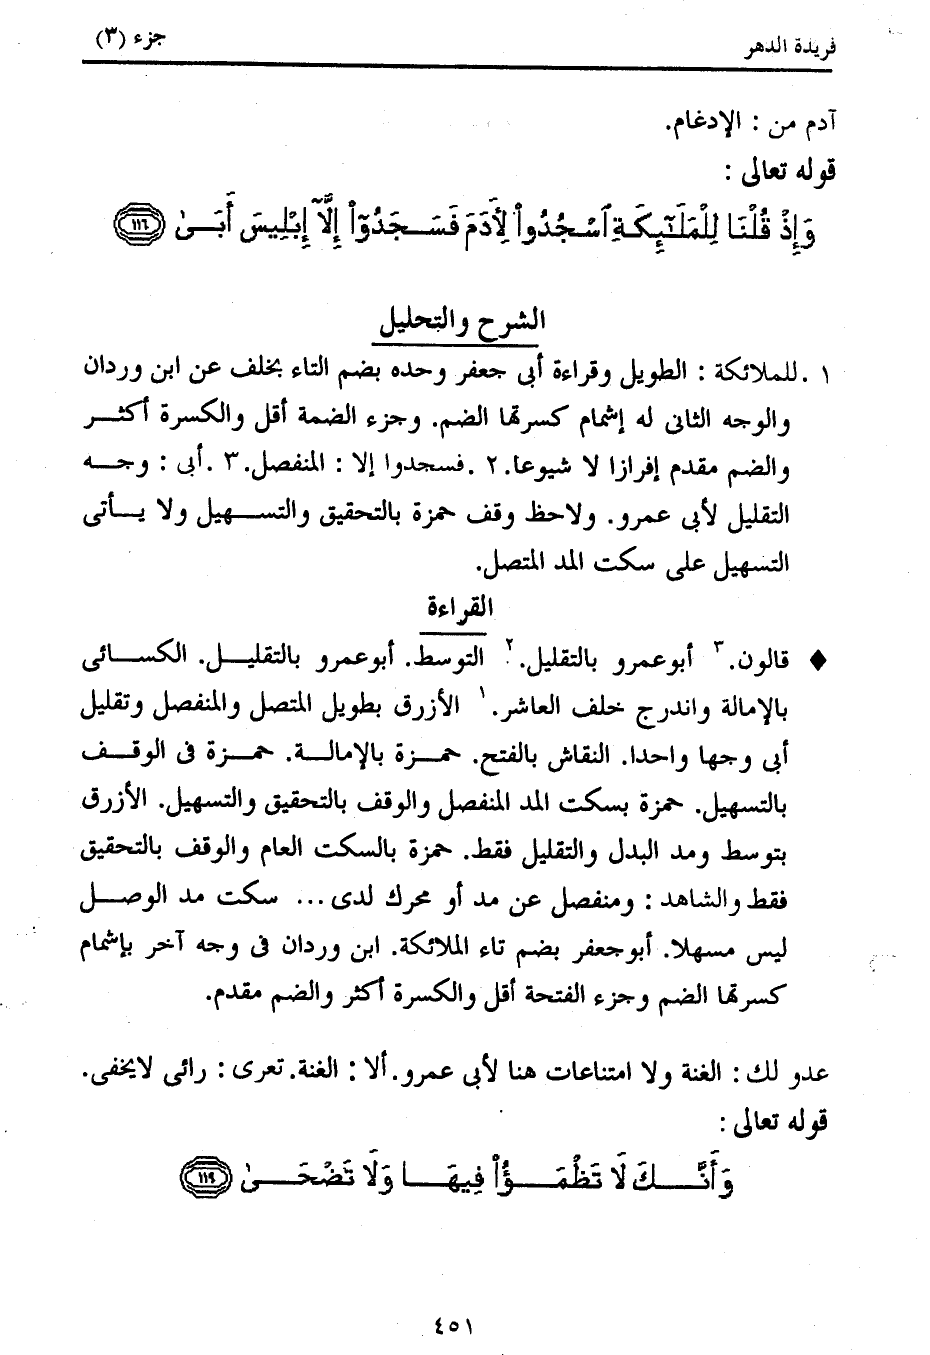 فريدة الدهر جزء (٣)
آدم من : الإدغام.
قوله تعالى :
وَإِذْ قُلْنَا لِلْمَلَٰٓئِكَةِ ٱسْجُدُوا۟ لِأَدَمَ فَسَجَدُوٓا۟ إِلَّآ إِبْلِيسَ أَبَىٰ ١١٦
الشرح والتحليل
١ .للملائكة : الطويل وقراءة أبى جعفر وحده بضم التاء بخلف عن ابن وردان
والوجه الثانى له إشمام كسرتها الضم. وجزء الضمة أقل والكسرة أكثر
والضم مقدم إفرازا لا شيوعا. ٢ .فسجدوا إلا : المنفصل. ٣ .أبى : وجه
التقليل لأبى عمرو. ولاحظ وقف حمزة بالتحقيق والتسهيل ولا يأتى
التسهيل على سكت المد المتصل.
القراءة
♦ قالون. ٣ أبوعمرو بالتقليل. ٢ التوسط. أبوعمرو بالتقليل. الكسائى
بالإمالة واندرج خلف العاشر. ١ الأزرق بطويل المتصل والمنفصل وتقليل
أبى وجها واحدا. النقاش بالفتح. حمزة بالإمالة. حمزة فى الوقف
بالتسهيل. حمزة بسكت المد المنفصل والوقف بالتحقيق والتسهيل. الأزرق
بتوسط ومد البدل والتقليل فقط. حمزة بالسكت العام والوقف بالتحقيق
فقط والشاهد : ومنفصل عن مد أو محرك لدى ... سكت مد الوصل
ليس مسهلا. أبوجعفر بضم تاء الملائكة. ابن وردان فى وجه آخر بإشمام
كسرتها الضم وجزء الفتحة أقل والكسرة أكثر والضم مقدم.
عدو لك : الغنة ولا امتناعات هنا لأبى عمرو. ألا : الغنة. تعرى : رائى لايخفى.
قوله تعالى :
وَأَنَّكَ لَا تَظْمَؤُا۟ فِيهَا وَلَا تَضْحَىٰ ١١٩
٤٥١